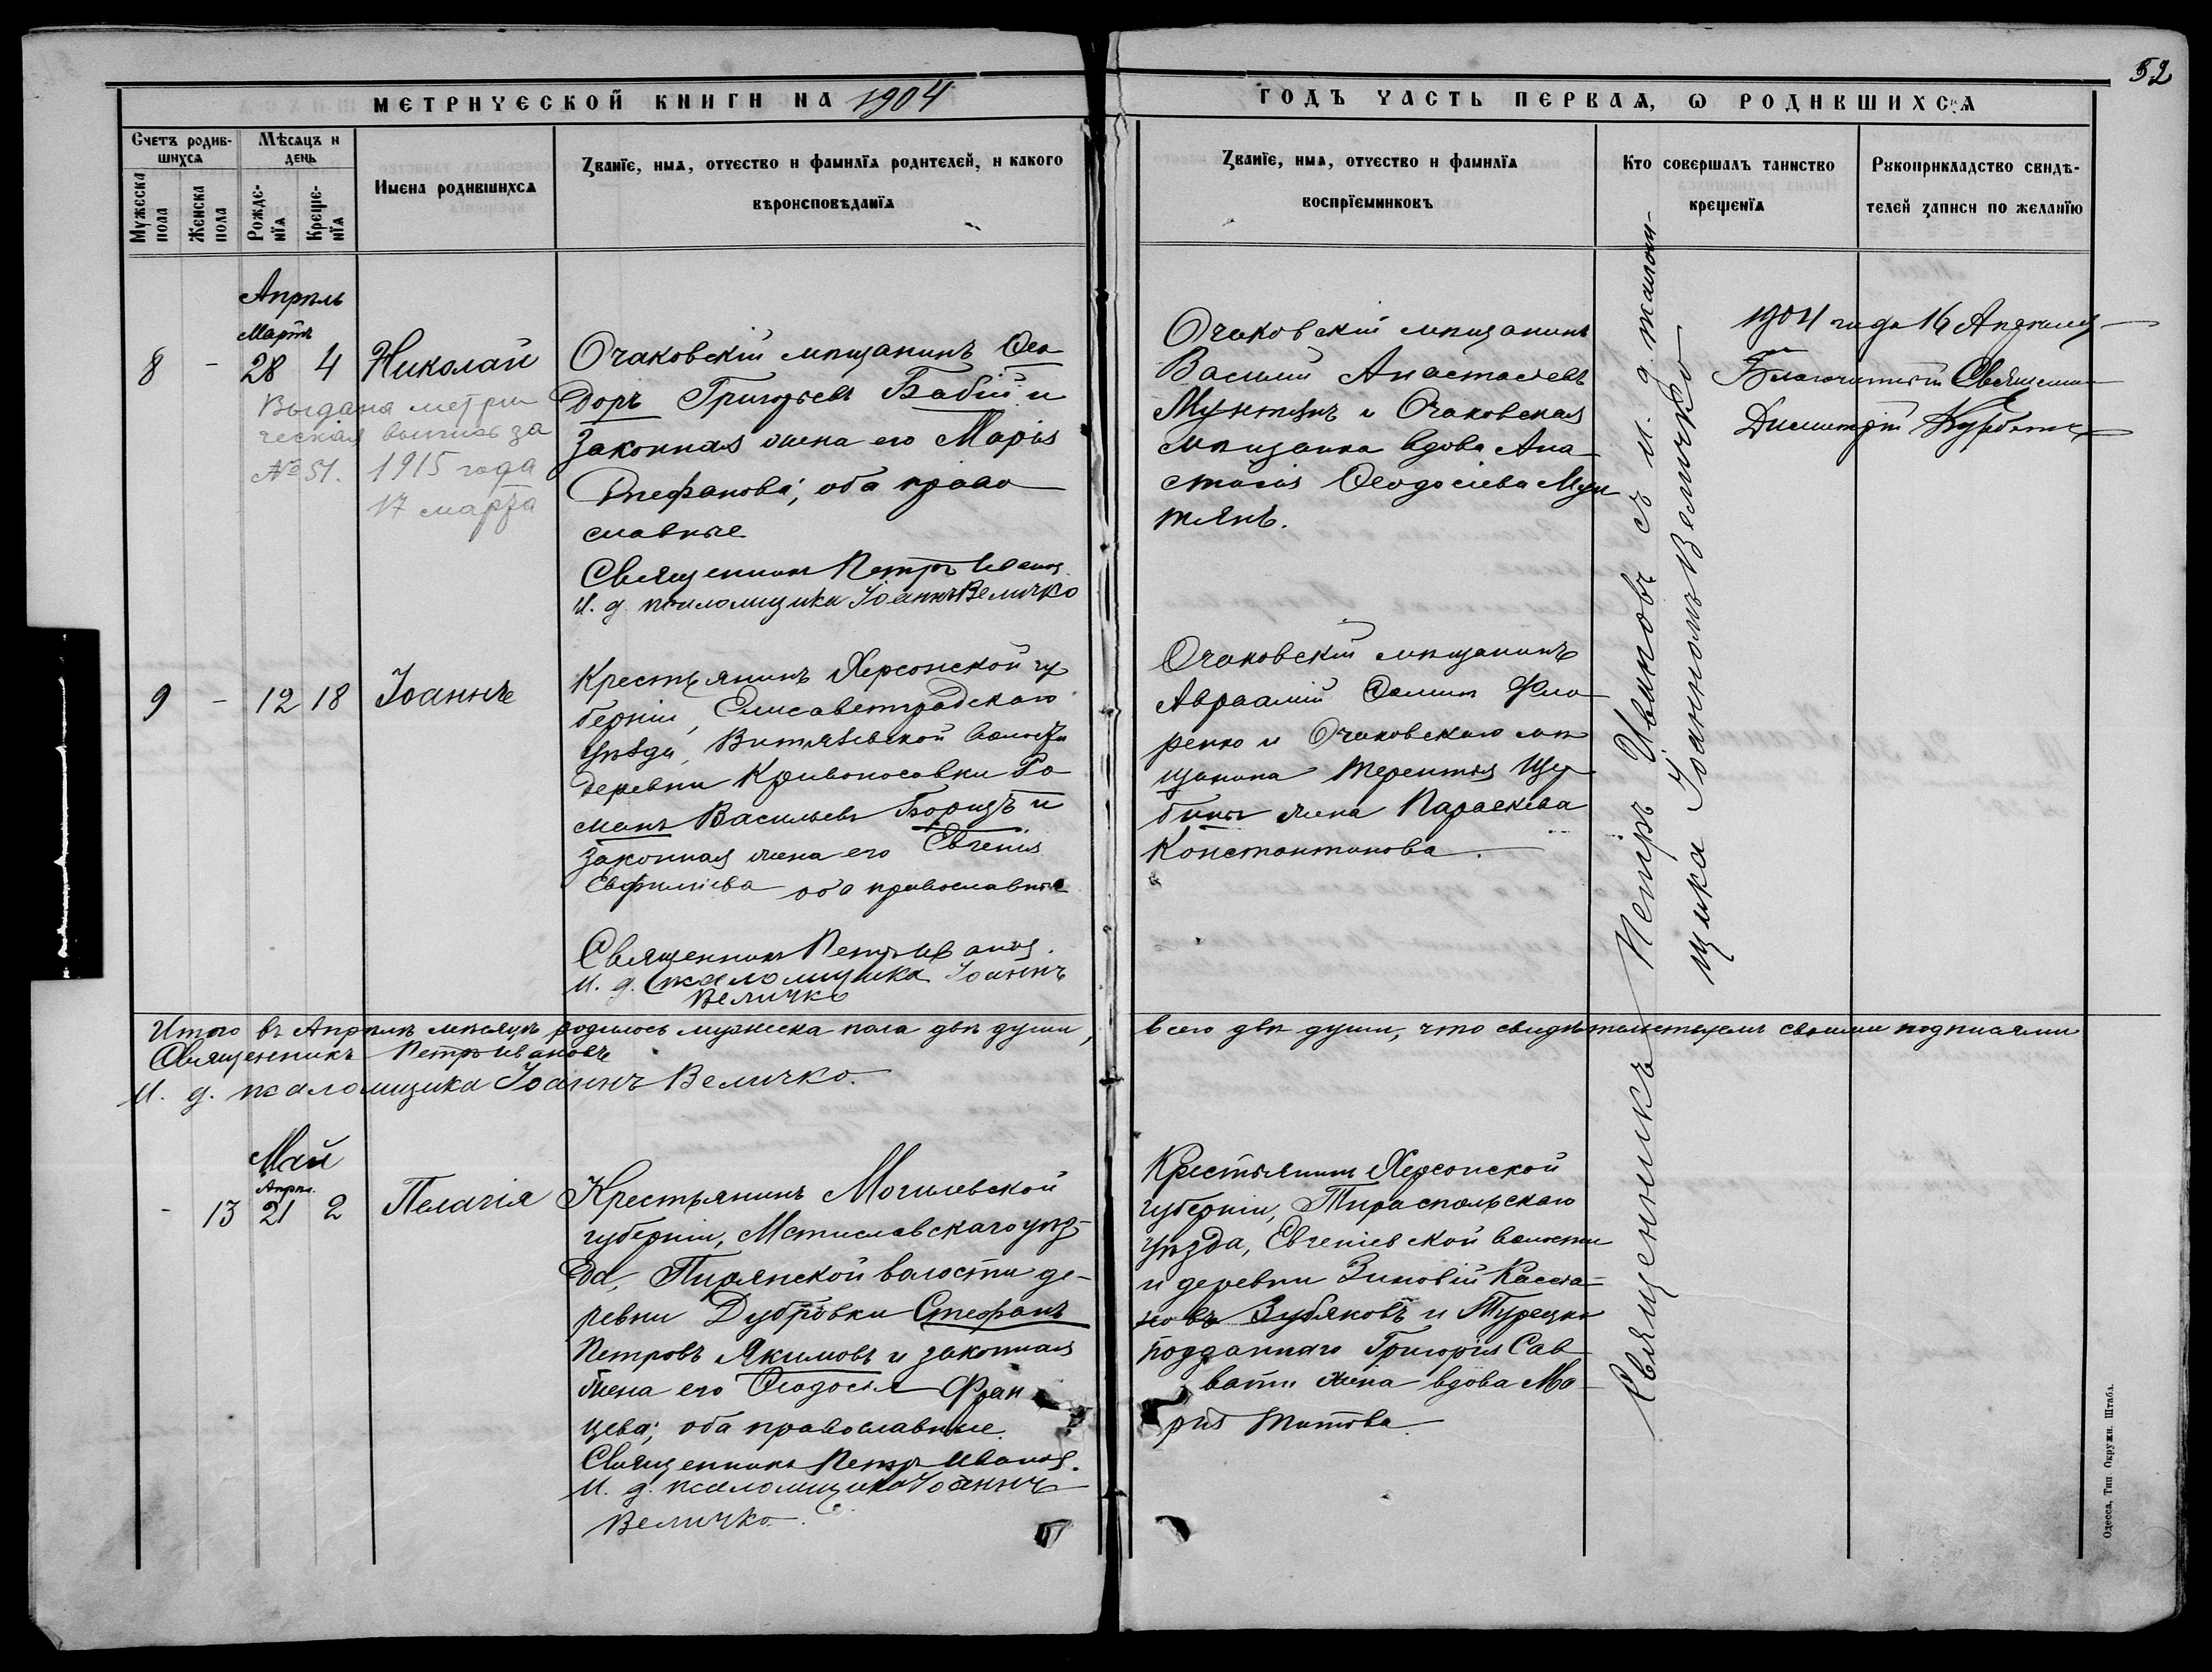 52
МЕТРИЧЕСКОЙ КНИГИ НА 1904
ГОДЪ ЧАСТЬ ПЕРВАЯ, Ѡ РОДИВШИХСЯ
Счетъ родив-
шихся
Мужеска
пола
Женска
пола
Мѣсяцъ и
день
Рожде-
нїя
Креще-
нїя
Имена родившихся
Званїе, имя, отчество и фамилїя родителей, и какого
вѣроисповѣданїя
Званїе, имя, отчество и фамилїя
воспрїемниковъ
Кто совершалъ таинство
крещенїя
Рукоприкладство свидѣ-
телей записи по желанїю
Апрѣль
Мартъ
8 - 28 4 Николай
Выдана метри
ческая выпись за
№ 51. 1915 года
17 марта
Очаковскій мѣщанинъ Ѳео
доръ Григорьевъ Бабій и
законная жена его Марія
Стефанова, оба право
славные
Священникъ Петръ Иванов
И. д. псаломщика Іоаннъ Величко
Очаковскій мѣщанинъ
Василій Анастасіевъ
Мунтянъ и Очаковская
мѣщанка вдова Ана
стасія Ѳеодосіева Мун
тянъ.
1904 года 16 Апрѣля
Благочинный Священник
Димитрій
9 - 12 18 Іоаннъ
Крестьянинъ Херсонской гу
берніи, Елисаветградскаго
уѣзда, Витязевской волости
деревни Кривоносовки Ро
манъ Васильевъ Борщъ и
законная жена его Евгенія
Евфиміева оба православные
Священникъ Петръ Иванов.
И. д. псаломщика Іоаннъ
Величко
Очаковскій мѣщанинъ
Авраамій Ѳомин Фло
ренко и Очаковскаго мѣ
щанина Терентія Щер
бины жена Параскева
Константинова.
Итого въ Апрѣлѣ мѣсяцѣ родилось мужеска пола двѣ души, всего двѣ души, что свидѣтельствуемъ своими подписями
Священникъ Петръ Ивановъ
И. д. псаломщика Іоаннъ Величко.
Май
Апрѣл.
- 13 21 2 Пелагія
Крестьянинъ Могилевской
губерніи, Мстиславскаго уѣз-
да, Пирянской волости де-
ревни Дубровки Стефанъ
Петровъ Якимовъ и законная
жена его Ѳеодосія Фран
цева; оба православные.
Священникъ Петръ Иванов.
И. д. псаломщика Іоаннъ
Величко.
Крестьянинъ Херсонской
губерніи, Тираспольскаго
уѣзда, Евгеніевской волости
и деревни Зиновій Кассіа-
новъ Зубяковъ и Турецко
подданнаго Григорія Сав
вати жена вдова Ма-
рія Титова.
Священникъ Петръ Ивановъ съ и. д. псалом-
щика Іоанномъ Величко
Одесса, Тип. Окружн. Штаба.